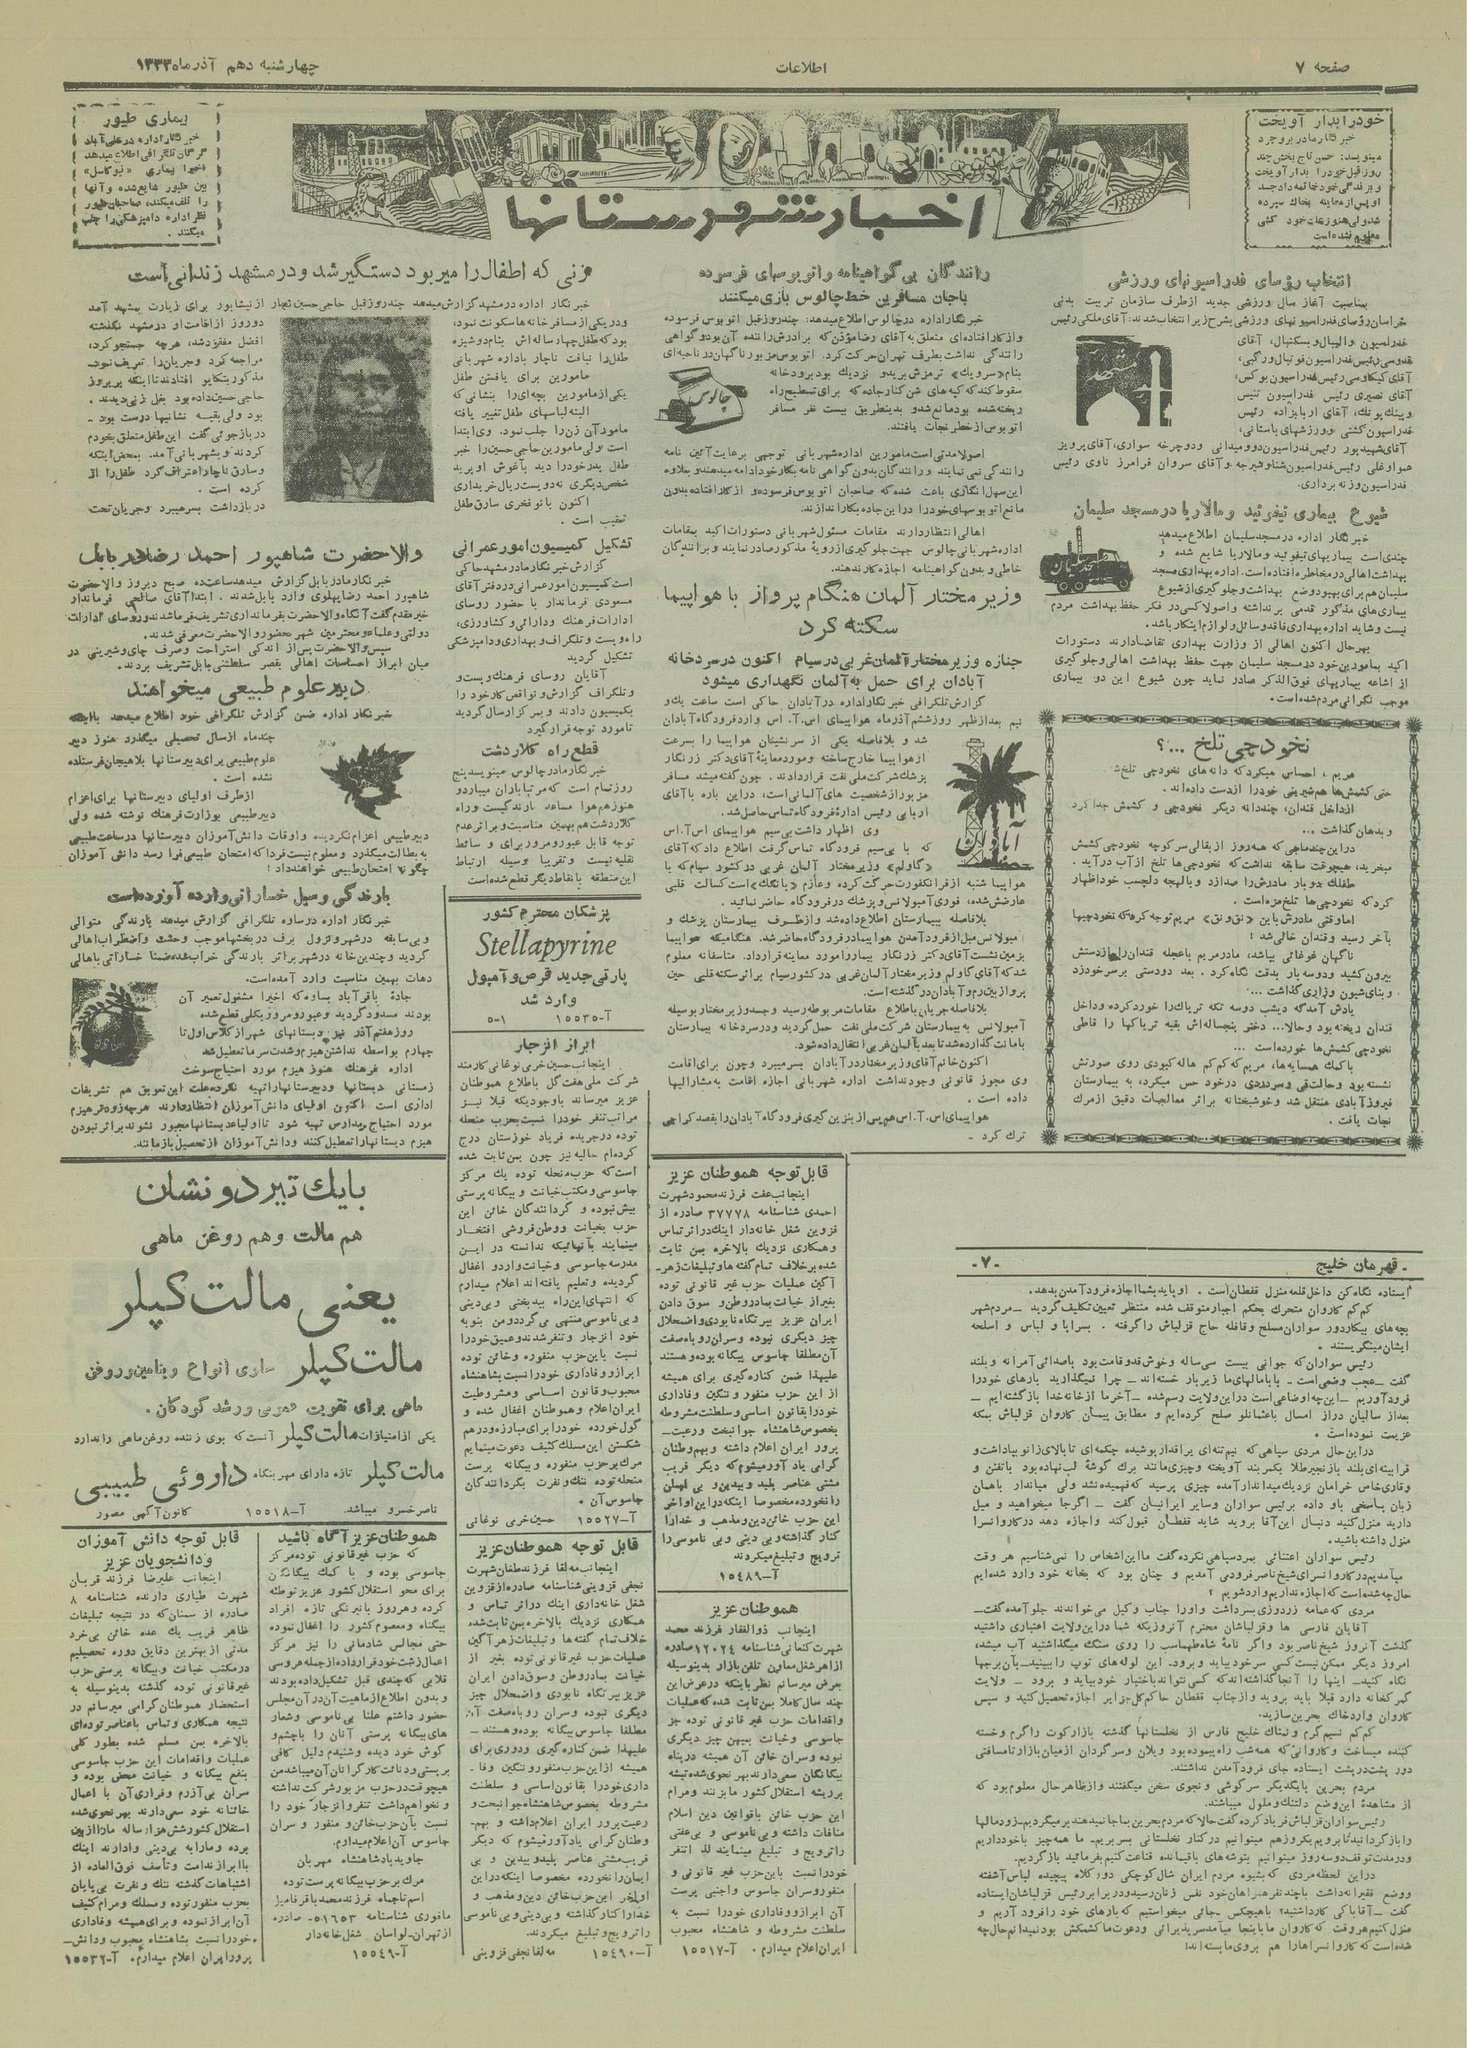 صفحه ۷
اطلاعات
چهارشنبه دهم آذرماه ۱۳۳۳
اخبار شهرستانها
خود را بدار آویخت
خبرنگار ما در بروجرد
مینویسد: حسن تاج بخش چند
روز قبل خود را بدار آویخت
و بزندگی خود خاتمه داد جسد
او پس از معاینه بخاک سپرده
شد ولی هنوز علت خود کشی
معلوم نشده است
بیماری طیور
خبرنگار اداره در علی آباد
گرگان تلگرافی اطلاع میدهد
اخیرا بیماری «نیوکاسل»
بین طیور شایع شده و آنها
را تلف میکند، صاحبان طیور
نظر اداره دامپزشکی را جلب
میکنند .
انتخاب رؤسای فدراسیونهای ورزشی
بمناسبت آغاز سال ورزشی جدید از طرف سازمان تربیت بدنی
خراسان رؤسای فدراسیونهای ورزشی بشرح زیر انتخاب شدند: آقای ملکی رئیس
فدراسیون والیبال و بسکتبال، آقای
قدوسی رئیس فدراسیون فوتبال و رگبی،
آقای کیکاوسی رئیس فدراسیون بوکس،
آقای نصیری رئیس فدراسیون تنیس
و پینک پونک، آقای اربابزاده رئیس
فدراسیون کشتی و ورزشهای باستانی،
آقای شهیدپور رئیس فدراسیون دوومیدانی و دوچرخه سواری، آقای پرویز
هواوغلی رئیس فدراسیون شنا و شیرجه و آقای سروان فرامرز ناوی رئیس
فدراسیون وزنه برداری.
مشهد
شیوع بیماری تیفوئید و مالاریا در مسجد سلیمان
خبرنگار اداره در مسجد سلیمان اطلاع میدهد
چندی است بیماریهای تیفوئید و مالاریا شایع شده و
بهداشت اهالی در مخاطره افتاده است. اداره بهداری مسجد
سلیمان هم برای بهبود وضع بهداشت و جلوگیری از شیوع
بیماری های مذکور قدمی برنداشته و اصولا کسی در فکر حفظ بهداشت مردم
نیست و شاید اداره بهداری فاقد وسائل و لوازم اینکار باشد.
بهرحال اکنون اهالی از وزارت بهداری تقاضا دارند دستورات
اکید بمأمورین خود در مسجد سلیمان جهت حفظ بهداشت اهالی و جلوگیری
از اشاعه بیماریهای فوق الذکر صادر نماید چون شیوع این دو بیماری
موجب نگرانی مردم شده است.
مسجد سلیمان
نخودچی تلخ ...؟
مریم ، احساس میکرد که دانه های نخودچی تلخ شد
حتی کشمش ها هم شیرینی خود را از دست داده اند.
از داخل قندان، چند دانه دیگر نخودچی و کشمش جدا کرد
و بدهان گذاشت ...
در این چند ماهی که همه روز از بقالی سر کوچه نخودچی کشمش
میخرید، هیچوقت سابقه نداشت که نخودچی ها تلخ از آب در آید .
طفلک دو بار مادرش را صدا زد و با لهجه دلچسب خود اظهار
کرد که نخودچی ها تلخ مزه است.
اما وقتی مادرش با این «نق و نق» مریم توجه کرد که نخودچیها
بآخر رسید و قندان خالی شد!
ناگهان غوغائی بپا شد، مادر مریم با عجله قندان را از دستش
بیرون کشید و دوسه بار بدقت نگاه کرد . بعد دودستی بر سر خود زد
و بنای شیون و زاری گذاشت ...
یادش آمد که دیشب دوسه تکه تریاک را خورد کرده و داخل
قندان ریخته بود و حالا... دختر پنجساله اش بقیه تریاکها را قاطی
نخودچی کشمش ها خورده است...
با کمک همسایه ها، مریم که کم کم هاله کبودی روی صورتش
نشسته بود و حالت قی و سردردی در خود حس میکرد، به بیمارستان
فیروز آبادی منتقل شد و خوشبختانه بر اثر معالجات دقیق از مرگ
نجات یافت .
رانندگان بی گواهینامه و اتوبوسهای فرسوده
با جان مسافرین خط چالوس بازی میکنند
خبرنگار اداره در چالوس اطلاع میدهد: چند روز قبل اتوبوس فرسوده
و از کار افتاده ای متعلق به آقای رضا مؤذن که برادرش راننده آن بود و گواهی
رانندگی نداشت بطرف تهران حرکت کرد. اتوبوس مزبور ناگهان در ناحیه ای
بنام «سرویک» ترمزش برید و نزدیک بود برودخانه
سقوط کند که کپه های شن کنار جاده که برای تسطیح راه
ریخته شده بود مانع شد و بدینطریق بیست نفر مسافر
اتوبوس از خطر نجات یافتند.
چالوس
اصولا مدتی است مأمورین اداره شهربانی توجهی برعایت آئین نامه
رانندگی نمی نمایند و رانندگان بدون گواهی نامه بکار خود ادامه میدهند و بعلاوه
این سهل انگاری باعث شده که صاحبان اتوبوس فرسوده و از کار افتاده بدون
مانع اتوبوسهای خود را در این جاده بکار اندازند.
اهالی انتظار دارند مقامات مسئول شهربانی دستورات اکید بمقامات
اداره شهربانی چالوس جهت جلوگیری از رویه مذکور صادر نمایند و برانندگان
خاطی و بدون گواهینامه اجازه کار ندهند.
وزیر مختار آلمان هنگام پرواز با هواپیما
سکته کرد
جنازه وزیر مختار آلمان غربی در سیام اکنون در سردخانه
آبادان برای حمل به آلمان نگهداری میشود
گزارش تلگرافی خبرنگار اداره در آبادان حاکی است ساعت یک و
نیم بعد از ظهر روز ششم آذر ماه هواپیمای اس.آ. اس وارد فرودگاه آبادان
شد و بلافاصله یکی از سرنشینان هواپیما را بسرعت
از هواپیما خارج ساخته و مورد معاینه آقای دکتر زرنگار
پزشک شرکت ملی نفت قرار دادند. چون گفته میشد مسافر
مزبور از شخصیت های آلمانی است، در این باره با آقای
اربابی رئیس اداره فرودگاه تماس حاصل شد.
وی اظهار داشت بی سیم هواپیمای اس.آ.اس
که با بی سیم فرودگاه تماس گرفت اطلاع داد که آقای
«گاولم» وزیر مختار آلمان غربی در کشور سیام که با
هواپیما شنبه از فرانکفورت حرکت کرده و عازم «بانگک» است کسالت قلبی
عارضش شده، فوری آمبولانس و پزشک در فرودگاه حاضر نمائید .
بلافاصله بیمارستان اطلاع داده شد و از طرف بیمارستان پزشک و
آمبولانس قبل از فرود آمدن هواپیما در فرودگاه حاضر شد. هنگامیکه هواپیما
بزمین نشست آقای دکتر زرنگار بیمار را مورد معاینه قرارداد. متاسفانه معلوم
شد که آقای گاولم وزیر مختار آلمان غربی در کشور سیام براثر سکته قلبی حین
پرواز بین رم و آبادان در گذشته است.
بلافاصله جریان باطلاع مقامات مربوطه رسید و جسد وزیر مختار بوسیله
آمبولانس به بیمارستان شرکت ملی نفت حمل گردید و در سردخانه بیمارستان
بامانت گذارده شد تا بعد بآلمان غربی انتقال داده شود.
اکنون خانم آقای وزیر مختار در آبادان بسر میبرد و چون برای اقامت
وی مجوز قانونی وجود نداشت اداره شهربانی اجازه اقامت به مشارالیها
داده است .
هواپیمای اس. آ. اس هم پس از بنزین گیری فرودگاه آبادان را بقصد کراچی
ترک کرد .
آبادان
زنی که اطفال را میربود دستگیر شد و در مشهد زندانی است
خبرنگار اداره در مشهد گزارش میدهد چند روز قبل حاجی حسین نجار از نیشابور برای زیارت بمشهد آمد
و در یکی از مسافرخانه ها سکونت نمود،
بود که طفل چهار ساله اش بنام دوشیزه
طفل را نیافت ناچار باداره شهربانی
مأمورین برای یافتن طفل
یکی از مأمورین بچه ای را بنشانی که
البته لباسهای طفل تغییر یافته
مأمور آن زن را جلب نمود. وی ابتدا
است ولی مأمورین حاجی حسین را خبر
طفل پدر خود را دید بآغوش او پرید
شخص دیگری به دویست ریال خریداری
اکنون بانو فخری سارق طفل
تعقیب است .
دو روز از اقامت او در مشهد نگذشته
افضل مفقود شد، هرچه جستجو کرد،
مراجعه کرد و جریان را تعریف نمود.
مذکور بتکاپو افتادند تا اینکه پریروز
حاجی حسین داده بود بغل زنی دیدند .
بود ولی بقیه نشانیها درست بود .
در بازجوئی گفت این طفل متعلق بخودم
کردند و بشهربانی آمد. بمحض اینکه
و سارق ناچار اعتراف کرد طفل را از
کرده است .
در بازداشت بسر میبرد و جریان تحت
تشکیل کمیسیون امور عمرانی
گزارش خبرنگار ما در مشهد حاکی
است کمیسیون امور عمرانی در دفتر آقای
مسعودی فرماندار با حضور روسای
ادارات فرهنگ و دارائی و کشاورزی،
راه و پست و تلگراف و بهداری و دامپزشکی
تشکیل گردید
آقایان روسای فرهنگ و پست
و تلگراف گزارش و نواقص کار خود را
بکمیسیون دادند و بمرکز ارسال گردید
تا مورد توجه قرار گیرد
قطع راه کلاردشت
خبرنگار ما در چالوس مینویسد پنج
روز تمام است که مرتبا باران میبارد و
هنوز هم هوا مساعد بارندگیست و راه
کلاردشت هم بهمین مناسبت و بر اثر عدم
توجه قابل عبور و مرور برای و سائط
نقلیه نیست و تقریبا وسیله ارتباط
این منطقه با نقاط دیگر قطع شده است
پزشکان محترم کشور
Stellapyrine
پارتی جدید قرص و آمپول
وارد شد
آ-۱۵۵۳۵ ۵-۱
والاحضرت شاهپور احمد رضا در بابل
خبرنگار ما در بابل گزارش میدهد ساعت ده صبح دیروز والاحضرت
شاهپور احمد رضا پهلوی وارد بابل شدند . ابتدا آقای صالحی فرماندار
خیر مقدم گفت آنگاه والاحضرت بفرمانداری تشریف فرما شدند و روسای ادارات
دولتی و علماء و محترمین شهر بحضور والاحضرت معرفی شدند.
سپس والاحضرت پس از اندکی استراحت و صرف چای و شیرینی در
میان ابراز احساسات اهالی بقصر سلطنتی بابل تشریف بردند.
دبیر علوم طبیعی میخواهند
خبرنگار اداره ضمن گزارش تلگرافی خود اطلاع میدهد با اینکه
چند ماه از سال تحصیلی میگذرد هنوز دبیر
علوم طبیعی برای دبیرستانها بلاهیجان فرستاده
نشده است .
از طرف اولیای دبیرستانها برای اعزام
دبیر طبیعی بوزارت فرهنگ نوشته شده ولی
دبیر طبیعی اعزام نگردیده و اوقات دانش آموزان دبیرستانها در ساعت طبیعی
به بطالت میگذرد و معلوم نیست فردا که امتحان طبیعی فرا رسد دانش آموزان
چگونه امتحان طبیعی خواهند داد!
بارندگی و سیل خساراتی وارد آورده است
خبرنگار اداره در ساوه تلگرافی گزارش میدهد بارندگی متوالی
و بی سابقه در شهر و نزول برف در بخشها موجب وحشت و اضطراب اهالی
گردید و چندین خانه در شهر بر اثر بارندگی خراب شده ضمنا خساراتی باهالی
دهات بهمین مناسبت وارد آمده است.
جاده باقرآباد بساوه که اخیرا مشغول تعمیر آن
بودند مسدود گردید و عبور و مرور بکلی قطع شده
روز هفتم آذر نیز دبستانهای شهر از کلاس اول تا
چهارم بواسطه نداشتن هیزم و شدت سرما تعطیل شد
اداره فرهنگ هنوز هیزم مورد احتیاج سوخت
زمستانی دبستانها و دبیرستانها را تهیه نکرده علت این تعویق هم تشریفات
اداری است اکنون اولیای دانش آموزان انتظار دارند هرچه زودتر هیزم
مورد احتیاج مدارس تهیه شود تا اولیاء دبستانها مجبور نشوند بر اثر نبودن
هیزم دبستانها را تعطیل کنند و دانش آموزان از تحصیل باز مانند.
ساوه
با یک تیر دو نشان
هم مالت و هم روغن ماهی
یعنی مالت کپلر
مالت کپلر حاوی انواع ویتامین و روغن
ماهی برای تقویت عمومی و رشد کودکان .
یکی از امتیازات مالت کپلر آنست که بوی زننده روغن ماهی را ندارد
مالت کپلر تازه دارای مهر بنگاه داروئی طبیبی
ناصر خسرو میباشد. آ-۱۵۵۱۸ کانون آگهی مصور
ابراز انزجار
اینجانب حسین خرمی نوغانی کارمند
شرکت ملی هفت گل باطلاع هموطنان
عزیز میرساند با وجودیکه قبلا نیز
مراتب تنفر خود را نسبت بحزب منحله
توده در جریده فریاد خوزستان درج
کرده ام حالیه نیز چون بمن ثابت شده
است که حزب منحله توده یک مرکز
جاسوسی و مکتب خیانت و بیگانه پرستی
بیش نبوده و گردانندگان خائن این
حزب بخیانت و وطن فروشی افتخار
مینمایند بآنهائیکه ندانسته در این
مدرسه جاسوسی و خیانت وارد و اغفال
گردیده و تعلیم یافته اند اعلام میدارم
که انتهای این راه ببدبختی و بی دینی
و بی ناموسی منتهی می گردد و من بنوبه
خود انزجار و تنفر شدید و عمیق خود را
نسبت باین حزب منفوره و خائن توده
ابراز و وفاداری خود را نسبت بشاهنشاه
محبوب و قانون اساسی و مشروطیت
ایران اعلام و هموطنان اغفال شده و
گول خورده خود را برای مبارزه و درهم
شکستن این مسلک کثیف دعوت مینمایم
مرگ بر حزب منفوره و بیگانه پرست
منحله توده ننگ و نفرت بگردانندگان
جاسوس آن .
آ-۱۵۵۲۷ حسین خرمی نوغانی
قابل توجه هموطنان عزیز
اینجانب عفت فرزند محمود شهرت
احمدی شناسنامه ۳۷۷۷۸ صادره از
قزوین شغل خانه دار اینک در اثر تماس
و همکاری نزدیک بالاخره بمن ثابت
شده بر خلاف تمام گفته ها و تبلیغات زهر-
آگین عملیات حزب غیر قانونی توده
بغیر از خیانت بمادر وطن و سوق دادن
ایران عزیز بپرتگاه نابودی و اضمحلال
چیز دیگری نبوده و سران روباه صفت
آن مطلقا جاسوس بیگانه بوده و هستند
علیهذا ضمن کناره گیری برای همیشه
از این حزب منفور و ننگین وفاداری
خود را بقانون اساسی و سلطنت مشروطه
بخصوص شاهنشاه جوانبخت و رعیت-
پرور ایران اعلام داشته و بهم وطنان
گرامی یادآور میشوم که دیگر فریب
مشتی عناصر پلید و بیدین و بی ایمان
را نخورده مخصوصا اینکه در این اواخر
این حزب خائن دین و مذهب و خدا را
کنار گذاشته و بی دینی و بی ناموسی را
ترویج و تبلیغ میکردند
آ-۱۵۴۸۹
هموطنان عزیز
اینجانب ذوالفقار فرزند محمد
شهرت کنعانی شناسنامه ۱۲۰۲۴ صادره
از اهر شغل معاون تلفن بازار بدینوسیله
بعرض میرسانم نظر باینکه در عرض این
چند سال کاملا بمن ثابت شده که عملیات
و اقدامات حزب غیر قانونی توده جز
جاسوسی و خیانت بمیهن چیز دیگری
نبوده و سران خائن آن همیشه در پناه
بیگانگان سعی دارند بهر نحوی شده تیشه
بر ریشه استقلال کشور ما بزنند و مرام
این حزب خائن با قوانین دین اسلام
منافات داشته و بی ناموسی و بی عفتی
را ترویج و تبلیغ مینمایند لذا تنفر
خود را نسبت باین حزب غیر قانونی و
منفور و سران جاسوس و اجنبی پرست
آن ابراز و وفاداری خود را نسبت به
سلطنت مشروطه و شاهنشاه محبوب
ایران اعلام میدارم . آ-۱۵۵۱۷
قابل توجه هموطنان عزیز
اینجانب مه لقا فرزند طغان شهرت
نجفی قزوینی شناسنامه صادره از قزوین
شغل خانه داری اینک در اثر تماس و
همکاری نزدیک بالاخره بمن ثابت شده
خلاف تمام گفته ها و تبلیغات زهر آگین
عملیات حزب غیر قانونی توده بغیر از
خیانت بمادر وطن و سوق دادن ایران
عزیز بپرتگاه نابودی و اضمحلال چیز
دیگری نبوده و سران روباه صفت آن
مطلقا جاسوس بیگانه بوده و هستند -
علیهذا ضمن کناره گیری و دوری برای
همیشه از این حزب منفور و ننگین وفا-
داری خود را بقانون اساسی و سلطنت
مشروطه بخصوص شاهنشاه جوانبخت و
رعیت پرور ایران اعلام داشته و بهم-
وطنان گرامی یادآور میشوم که دیگر
فریب مشتی عناصر پلید و بیدین و بی
ایمان را نخورده مخصوصا اینکه در این
اواخر این حزب خائن دین و مذهب و
خدا را کنار گذاشته و بی دینی و بی ناموسی
را ترویج و تبلیغ میکردند.
آ-۱۵۴۹۰ مه لقا نجفی قزوینی
هموطنان عزیز آگاه باشید
که حزب غیر قانونی توده مرکز
جاسوسی بوده و با کمک بیگانگان
برای محو استقلال کشور عزیز توطئه
کرده و هر روز با نیرنگی تازه افراد
بیگناه و معصوم کشور را اغفال نموده
حتی مجالس شادمانی را نیز مرکز
اعمال زشت خود قرار داده از جمله عروسی
قلابی که چندی قبل تشکیل داده بودند
و بدون اطلاع از ماهیت آن در آن مجلس
حضور داشتم علنا بی ناموسی و شعار
های بیگانه پرستی آنان را با چشم و
گوش خود دیده و شنیدم دلیل کافی
بر پستی و دنائت کارگرانان آن میباشد من
هیچوقت در حزب مزبور شرکت نداشته
و نخواهم داشت تنفر و انزجار خود را
نسبت بآن حزب خائن و منفور و سران
جاسوس آن اعلام میدارم.
جاوید باد شاهنشاه مهربان
مرگ بر حزب بیگانه پرست توده
اسم تاجماه فرزند محمد باقر فامیل
مانوری شناسنامه ۵۱۶۵۳- صادره
از تهران- لواسان شغل خانه دار
آ-۱۵۵۴۹
قابل توجه دانش آموزان
و دانشجویان عزیز
اینجانب علیرضا فرزند قربان
شهرت طیاری دارنده شناسنامه ۸
صادره از سمنان که در نتیجه تبلیغات
ظاهر فریب یک عده خائن بی خرد
مدتی از بهترین دقایق دوره تحصیلیم
در مکتب خیانت و بیگانه پرستی حزب
غیر قانونی توده گذشته بدینوسیله به
استحضار هموطنان گرامی میرسانم در
نتیجه همکاری و تماس با عناصر توده ای
بالاخره بمن مسلم شده بطور کلی
عملیات و اقدامات این حزب جاسوسی
بنفع بیگانه و خیانت محض بوده و
سران بی آزرم و فراری آن با اعمال
خائنانه خود سعی دارند بهر نحوی شده
استقلال کشور شش هزار ساله ما را از بین
برده و ما را به بی دینی وادارند اینک
با ابراز ندامت و تأسف فوق العاده از
اشتباهات گذشته ننگ و نفرت بی پایان
بحزب منفور توده و مسلک و مرام کثیف
آن ابراز نموده و برای همیشه وفاداری
خود را نسبت بشاهنشاه محبوب و دانش-
پرور ایران اعلام میدارم. آ-۱۵۵۳۲
ـ قهرمان خلیج -۷-
ایستاده نگاه کن داخل قلعه منزل قفطان است . او باید بشما اجازه فرود آمدن بدهد.
کم کم کاروان متحرک بحکم اجبار متوقف شده منتظر تعیین تکلیف گردید - مردم شهر
بچه های بیکار دور سواران مسلح و قافله حاج قزلباش را گرفته . بسراپا و لباس و اسلحه
ایشان مینگریستند .
رئیس سواران که جوانی بیست سی ساله و خوش قد و قامت بود با صدائی آمرانه و بلند
گفت - عجب وضعی است - بابا مالهای ما زیر بار خسته اند - چرا نمیگذارید بارهای خود را
فرود آوریم - این چه اوضاعی است در این ولایت رسم شده - آخر ما از خانه خدا باز گشته ایم -
بعد از سالیان دراز امسال با عثمانلو صلح کرده ایم و مطابق پیمان کاروان قزلباش بمکه
عزیمت نموده است .
در این حال مردی سیاهی که نیم تنه ای یراقدار پوشیده چکمه ای تا بالای زانو بپا داشت و
قرابینه ای بلند با زنجیر طلا بکمر بند آویخته و چیزی مانند برگ گوشه لب نهاده بود با تفتن و
وقاری خاص خرامان نزدیک میداندار آمده چیزی پرسید که فهمیده نشد ولی میاندار با همان
زبان پاسخی باو داده برئیس سواران و سایر ایرانیان گفت - اگر جا میخواهید و میل
دارید منزل کنید دنبال این آقا بروید شاید قفطان قبول کند و اجازه دهد در کاروانسرا
منزل داشته باشید.
رئیس سواران اعتنائی بمرد سیاهی نکرده گفت ما این اشخاص را نمی شناسیم هر وقت
میآمدیم در کاروانسرای شیخ ناصر فرود می آمدیم و چنان بود که بخانه خود وارد شده ایم
حال چه شده است که اجازه نداریم وارد شویم ؟
مردی که عمامه زردوزی بسر داشت و او را جناب وکیل می خواندند جلو آمده گفت -
آقایان فارسی ها و قزلباشان محترم آنروزیکه شما در این ولایت اعتباری داشتید
گذشت آنروز شیخ ناصر بود و اگر نامه شاه طهماسب را روی سنگ میگذاشتید آب میشد،
امروز دیگر ممکن نیست کسی سر خود بیاید و برود. این لوله های توپ را ببینید - بآن برجها
نگاه کنید - اینها را آنجا گذاشته اند که کسی نتواند باختیار خود بیاید و برود - ولایت
گبرکخانه دارد قبلا باید بروید و از جناب قفطان حاکم کل جزایر اجازه تحصیل کنید و سپس
کاروان وارد خاک بحرین سازید.
کم کم نسیم گرم و نمناک خلیج فارس از نخلستانها گذشته بازار کوت را گرم و خسته
کننده میساخت و کاروانی که همه شب راه پیموده بود ویلان و سرگردان از میان بازار تا مسافتی
دور پشت در پشت ایستاده جای فرود آمدن نداشتند.
مردم بحرین با یکدیگر سرگوشی و نجوی سخن میگفتند و از ظاهر حال معلوم بود که
از مشاهده این وضع دلتنگ و ملول میباشند.
رئیس سواران قزلباش فریاد کرده گفت حالا که مردم بحرین بما جا نمیدهند بر میگردیم - زود مالها
را باز گردانید تا برویم یکروز هم میتوانیم در کنار نخلستانی بسر بریم . ما همه چیز با خود داریم
و در مدت توقف دوسه روز میتوانیم بتوشه های باقیمانده قناعت کنیم بفرمائید بازگردیم.
در این لحظه مردی که بشیوه مردم ایران شال کوچکی دور کلاه پیچیده لباس آشفته
و وضع فقیرانه داشت با چند نفر همراهان خود نفس زنان رسید و در برابر رئیس قزلباشان ایستاده
گفت - آقا با کی کار داشتید؟ بآهیچکس جائی میخواستیم که بارهای خود را فرود آریم و
منزل کنیم هر وقت که کاروان ما باینجا میآمد سر پذیرائی و دعوت ما کشمکش بود نمیدانم حال چه
شده است که کاروانسراها را هم بروی ما بسته اند!